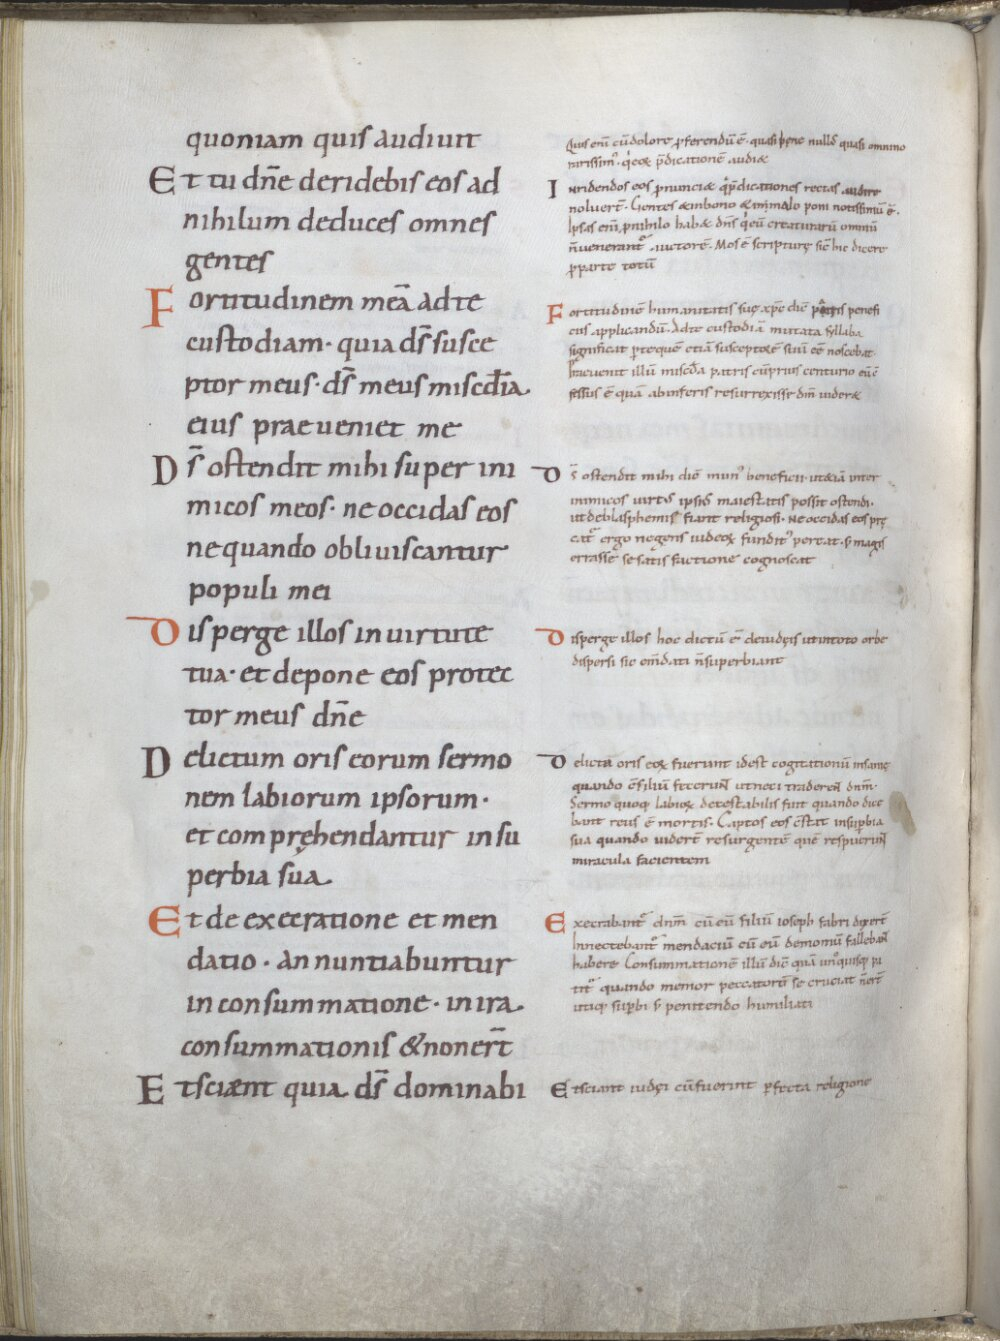 quoniam quis audiuit
Et tu dn̄e deridebis eos ad
nihilum deduces omnes
gentes
Fortitudinem meā ad te
custodiam · quia ds̄ susce
ptor meus · ds̄ meus misc̄dia
eius praeueniet me
Ds̄ ostendit mihi super ini
micos meos · ne occidas eos
ne quando obliuiscantur
populi mei
Disperge illos in uirtute
tua · et depone eos protec
tor meus dn̄e
Delictum oris eorum sermo
nem labiorum ipsorum ·
et comprehendantur in su
perbia sua
Et de execratione et men
datio · annuntiabuntur
in consummatione · in ira
consummationis & non ert̄
Et sciænt quia ds̄ dominabi
Quis enī cū dolore ꝓferendū ē · quasi pene nullꝰ quasi omnino
rarissimꝰ · predicationē audi&
Inridendos eos rectas audire
noluert̄ · Gentes & in bono & in malo poni notissimū ē ·
Ipsas enī ꝓ nihilo hab& dn̄s creaturarū omniū
n̄ uenerant᷑ auctorē · Mos ē scripturę sic̄ hic dicere
ꝑ parte totū
Fortitudinē humanitatis suę xp̄c dic̄ patris benefi
ciis applicandū · Ad te custodiā mutata syllaba
significat ꝑ te quē etiā susceptorē suū eē noscebat ·
Praeuenit illū misc̄da patris cū prius centurio eū cō
fessus ē quā ab inferis resurrexisse dn̄m uider&
Ds̄ ostendit mihi dic̄ munꝰ beneficii · ut etiā inter
inimicos uirtꝰ ipsius maiestatis possit ostendi ·
ut de blasphemis fiant religiosi · Ne occidas eos prę
cat᷑ ergo ne gens iudeoꝝ funditꝰ pereat · s; magis
errasse se satisfactione cognoscat
Disperge illos hoc dictū ē de iudęis ut in toto orbe
dispersi sic om̄dati n̄ superbiant
Delicta oris eoꝝ fuerunt idest cogitationū insanię
quando filium ut neci traderent dn̄m
Sermo quoq; labioꝝ detestabilis fuit quando dice
bant reus ē mortis · Captos eos in superbia
sua quando uiderent resurgentē quē respuerunt
miracula facientem
Execrabant᷑ dn̄m cū eū filiū ioseph fabri dixert̄
Innectebant᷑ mendaciū cū eū demoniū fallebant
habere Consummationē illū dic̄ quā unꝰquisq; pa
tit᷑ quando memor peccatorū se cruciat n̄ ert̄
utiq; supbi s; penitendo humiliati
Et sciant iudęi cū fuerint ꝑfecta religione